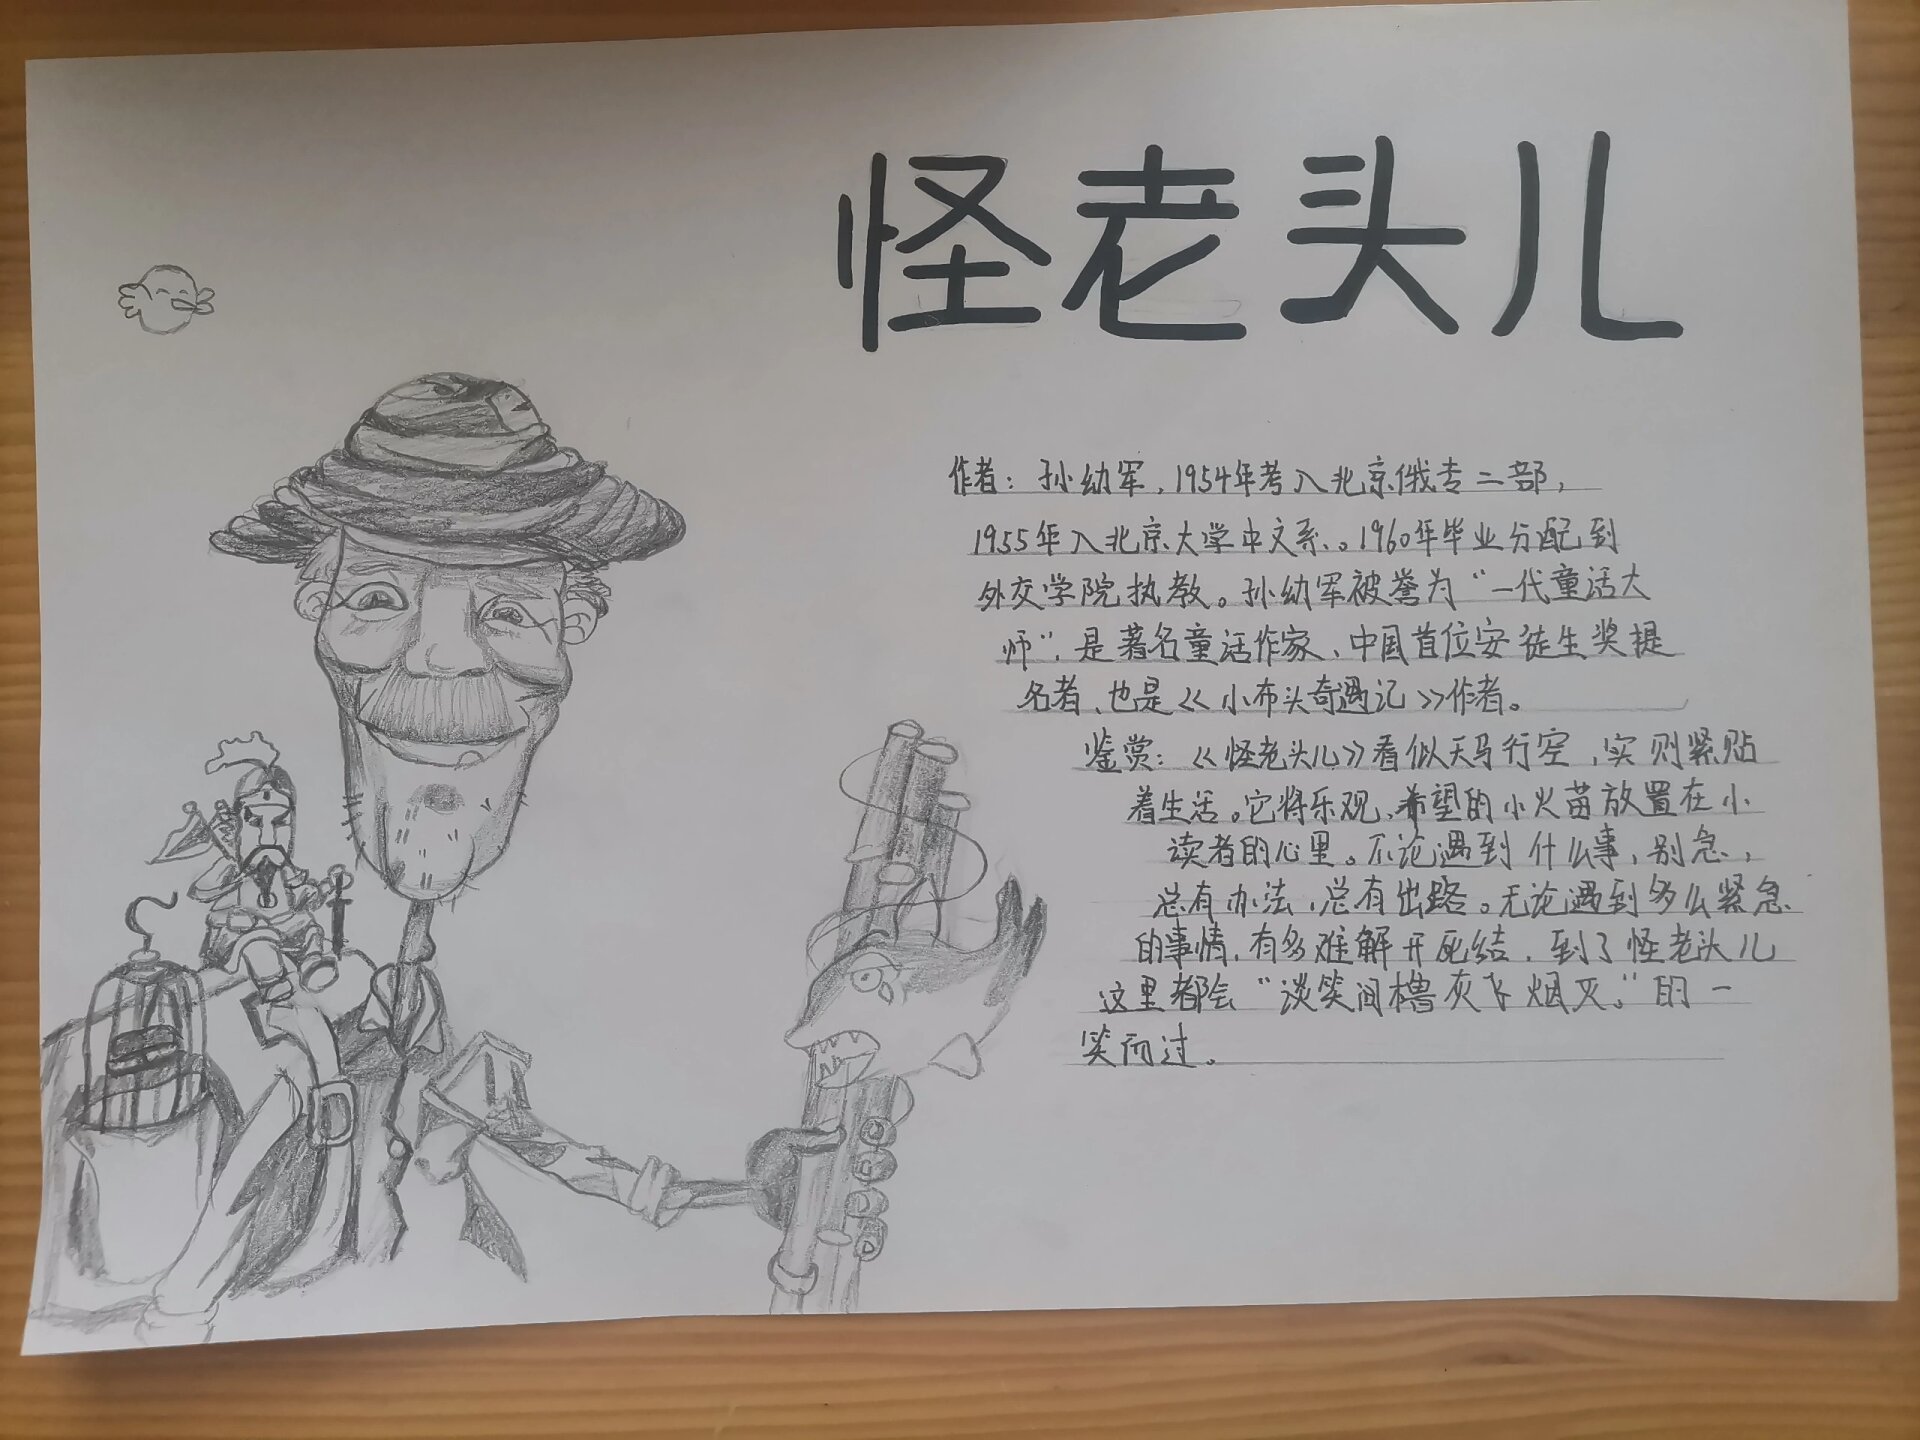 怪老头儿
作者：孙幼军，1954年考入北京俄专二部，
1955年入北京大学中文系。1960年毕业分配到
外交学院执教。孙幼军被誉为“一代童话大
师”，是著名童话作家、中国首位安徒生奖提
名者、也是《小布头奇遇记》作者。
鉴赏：《怪老头儿》看似天马行空，实则紧贴
着生活。它将乐观、希望的小火苗放置在小
读者的心里。不论遇到什么事，别急，
总有办法，总有出路。无论遇到多么紧急
的事情，有多难解开死结，到了怪老头儿
这里都会“谈笑间橹灰飞烟灭。”的一
笑而过。